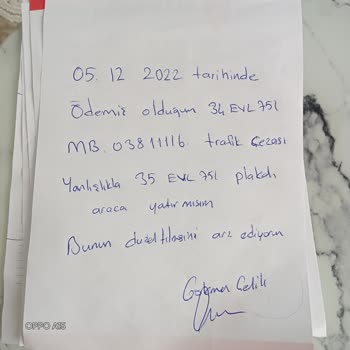 05. 12 2022 tarihinde
Ödemiş olduğum 34 EVL 751
MB. 03811116. trafik Cezası
Yanlışlıkla 35 EVL 751 plakalı
araca yatırmışım
Bunun düzeltilmesini arz ediyorum
Çelik
OPPO A15